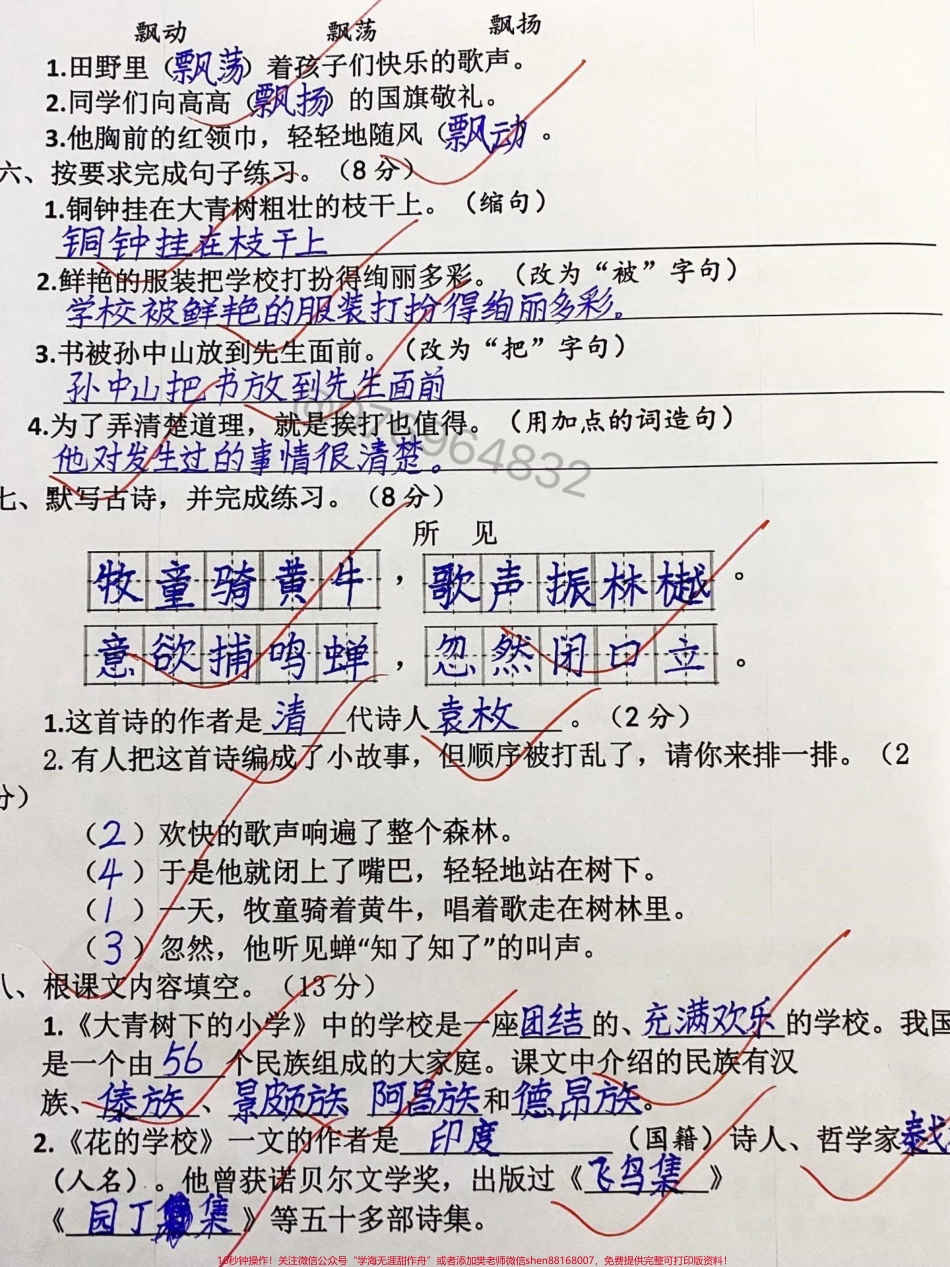 飘动 飘荡 飘扬
1.田野里（飘荡）着孩子们快乐的歌声。
2.同学们向高高（飘扬）的国旗敬礼。
3.他胸前的红领巾，轻轻地随风（飘动）。
六、按要求完成句子练习。（8 分）
1.铜钟挂在大青树粗壮的枝干上。（缩句）
铜钟挂在枝干上
2.鲜艳的服装把学校打扮得绚丽多彩。（改为“被”字句）
学校被鲜艳的服装打扮得绚丽多彩。
3.书被孙中山放到先生面前。（改为“把”字句）
孙中山把书放到先生面前
4.为了弄清楚道理，就是挨打也值得。（用加点的词造句）
他对发生过的事情很清楚。
七、默写古诗，并完成练习。（8 分）
所 见
牧童骑黄牛，歌声振林樾。
意欲捕鸣蝉，忽然闭口立。
1.这首诗的作者是清代诗人袁枚。（2 分）
2.有人把这首诗编成了小故事，但顺序被打乱了，请你来排一排。（2
分）
（2）欢快的歌声响遍了整个森林。
（4）于是他就闭上了嘴巴，轻轻地站在树下。
（1）一天，牧童骑着黄牛，唱着歌走在树林里。
（3）忽然，他听见蝉“知了知了”的叫声。
八、根课文内容填空。（13 分）
1.《大青树下的小学》中的学校是一座团结的、充满欢乐的学校。我国
是一个由56个民族组成的大家庭。课文中介绍的民族有汉
族、傣族、景颇族 阿昌族和德昂族。
2.《花的学校》一文的作者是印度（国籍）诗人、哲学家泰戈
（人名）。他曾获诺贝尔文学奖，出版过《飞鸟集》
《园丁集》等五十多部诗集。
10秒钟操作！关注微信公众号“学海无涯甜作舟”或者添加樊老师微信shen88168007，免费提供完整可打印版资料！